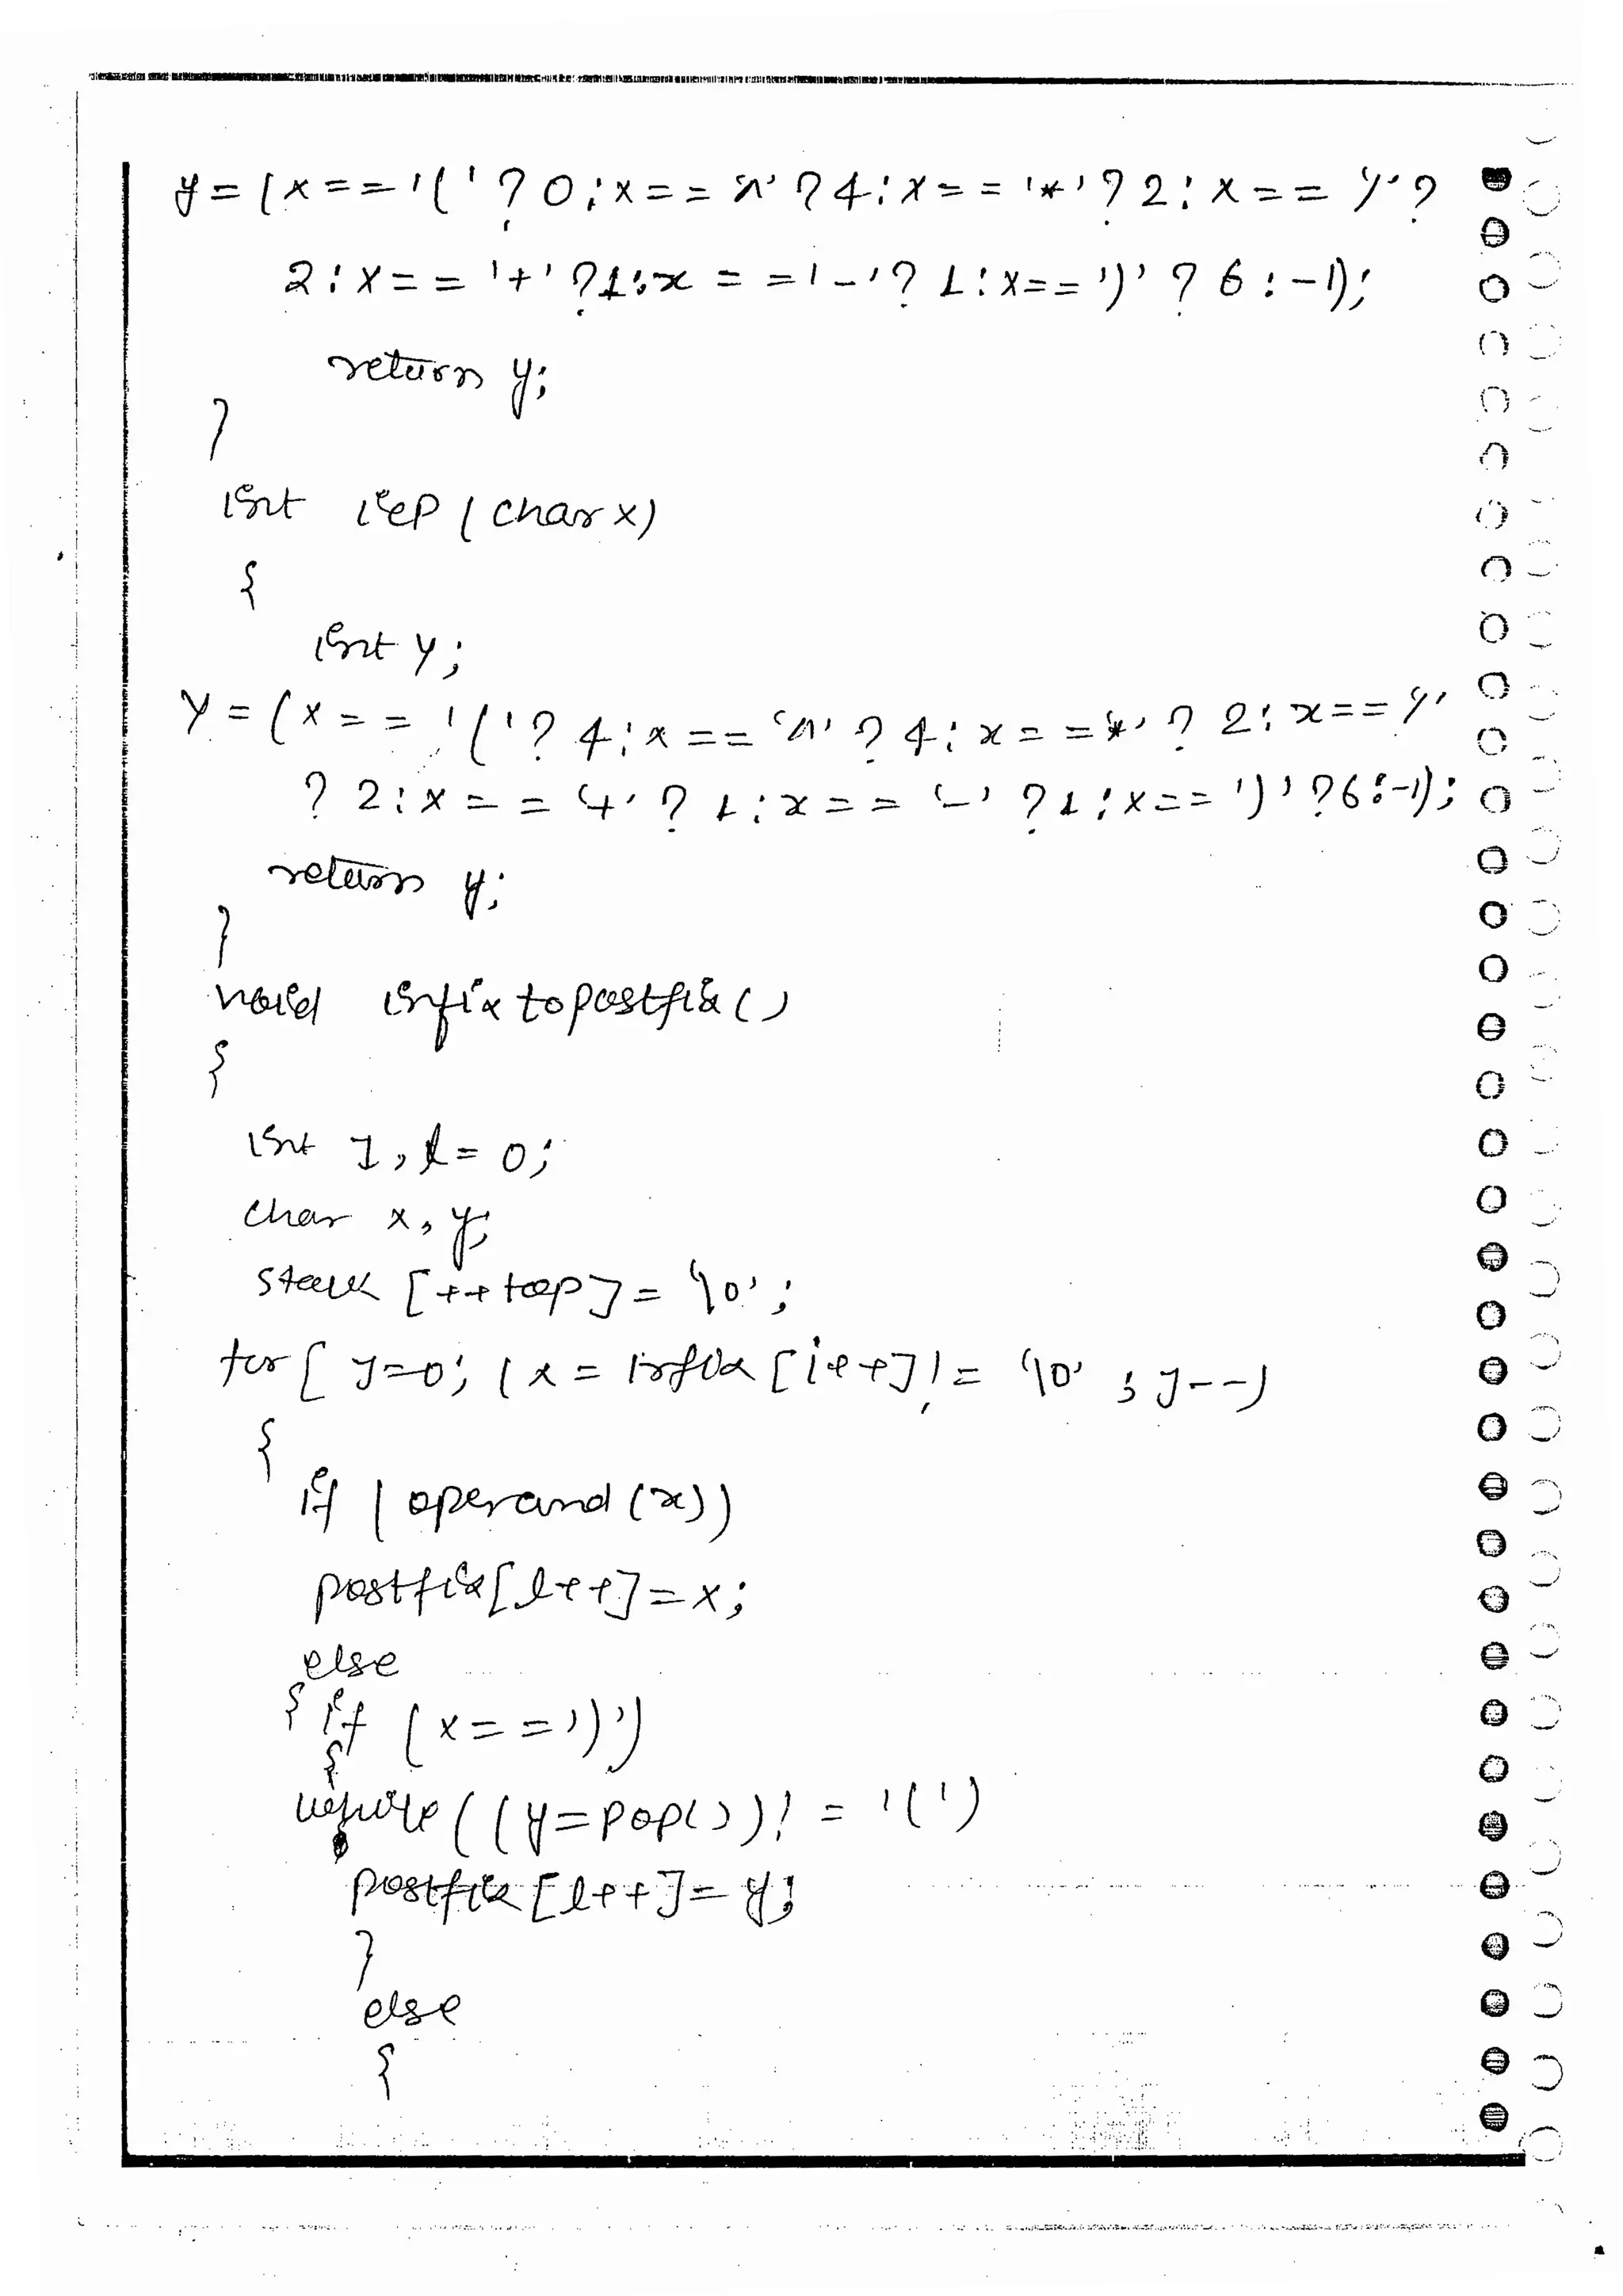 y = (x == '(' ? 0 : x == '^' ? 4 : x == '*' ? 2 : x == '/' ?
2 : x == '+' ? 1 : x == '-' ? 1 : x == ')' ? 6 : -1);
return y;
}
int icp (char x)
{
int y;
y = (x == '(' ? 4 : x == '^' ? 4 : x == '*' ? 2 : x == '/'
? 2 : x == '+' ? 1 : x == '-' ? 1 : x == ')' ? 6 : -1);
return y;
}
void infix to postfix ()
{
int j, l = 0;
char x, y;
stack [++top] = '\0';
for [ j=0; (x = infix [i++] != '\0' ; j--)
{
if (operand (x))
postfix [l++] = x;
else
{ if (x == ')')
{
while ((y = pop()) != '(')
postfix [l++] = y;
}
else
{